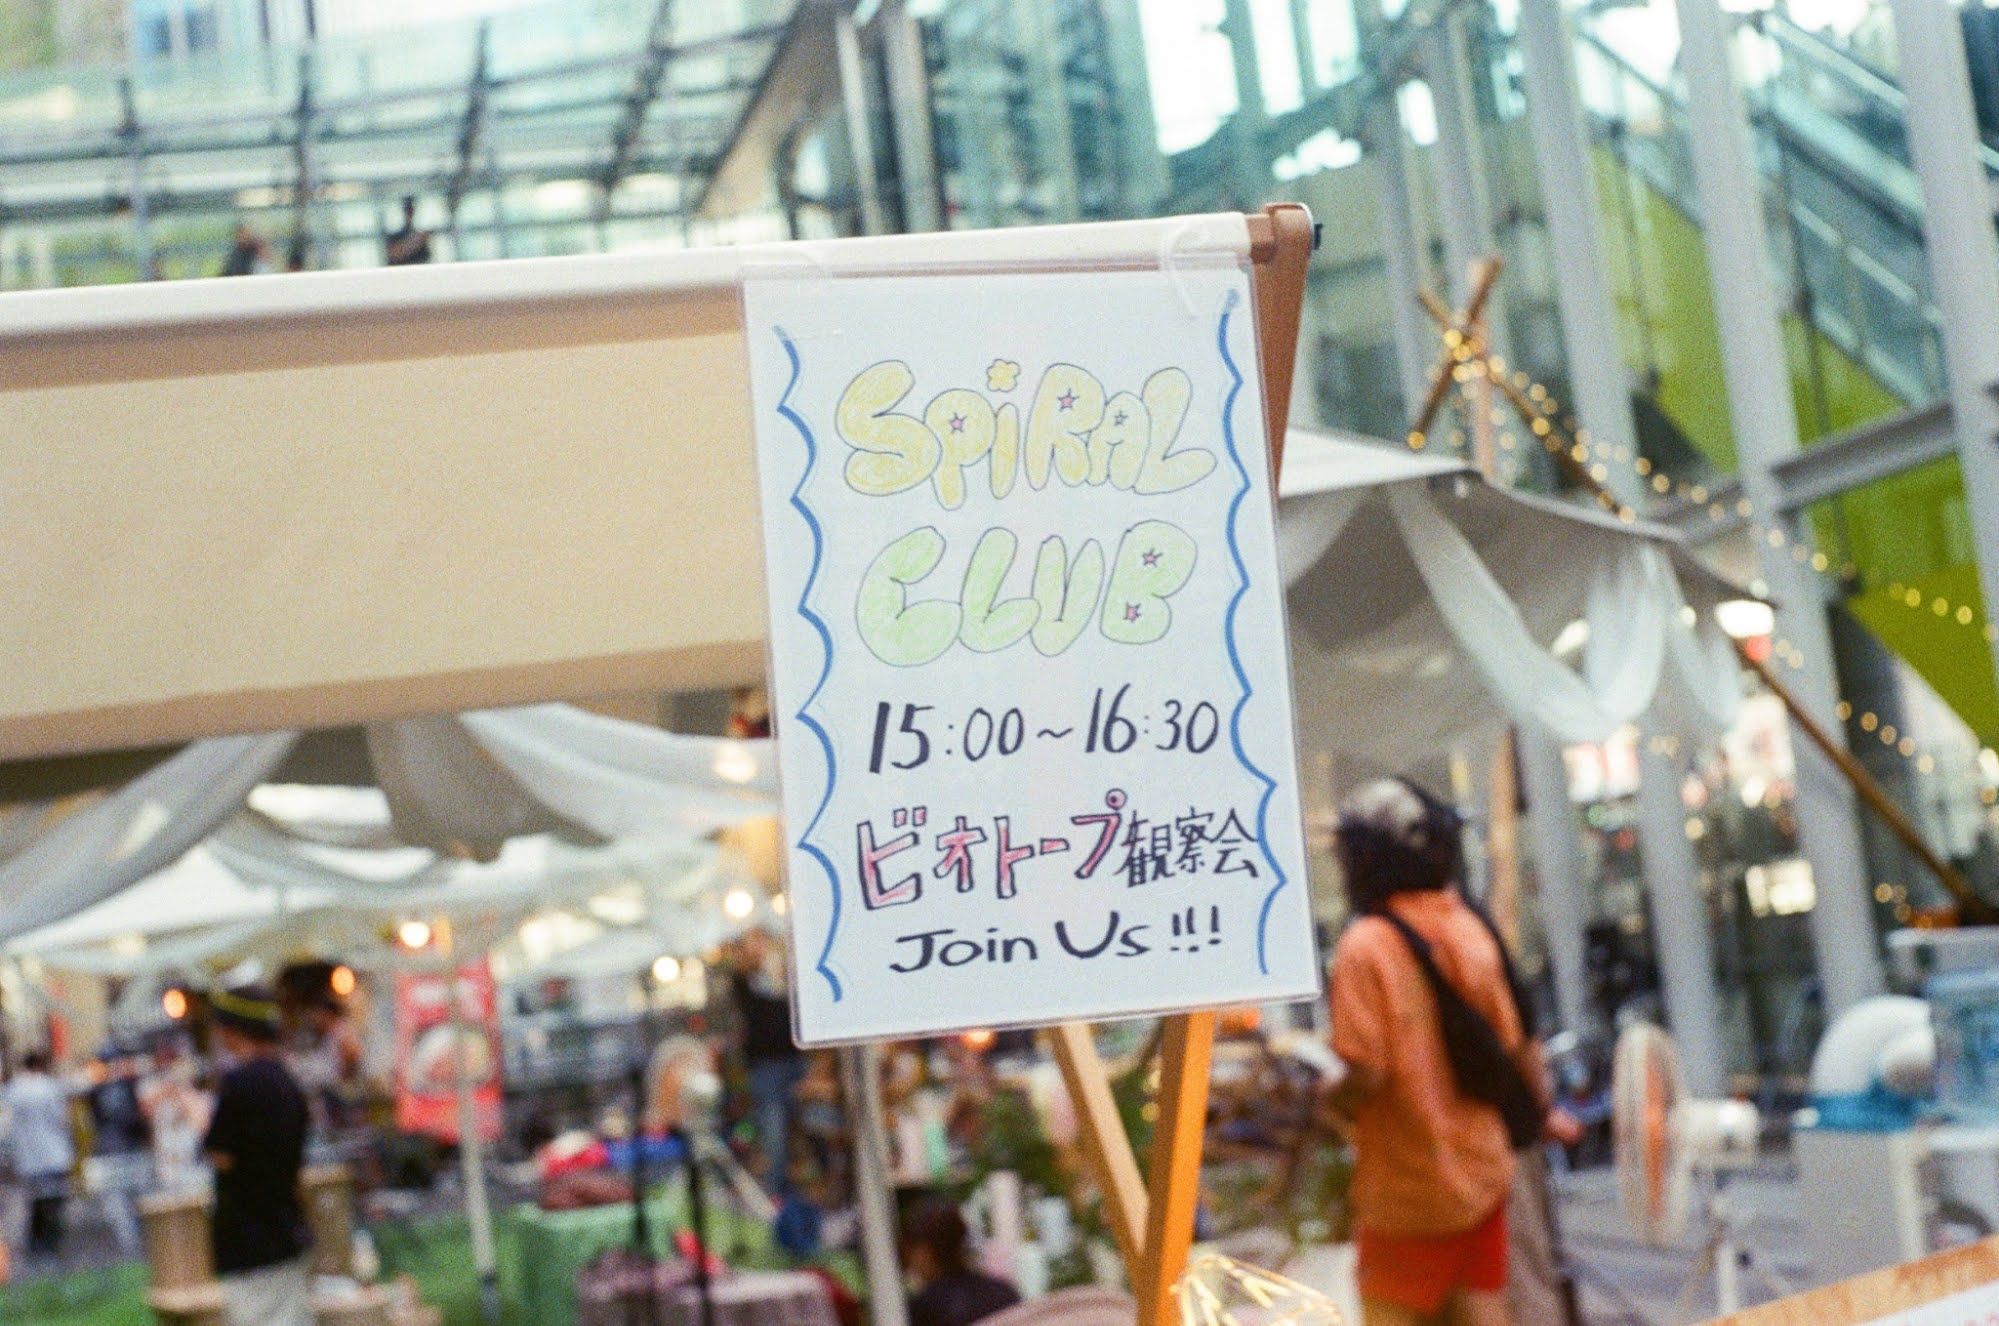 SPiRAL
CLUB
15:00~16:30
ビオトープ観察会
Join Us!!!